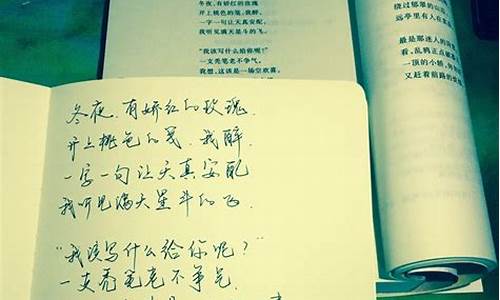 冬夜,有娇红的玫瑰
开上桃色的笺,我醉,
一字一句让天真安配,
我听见满天星斗的飞。
“我该写什么给你呢?”
一支秃笔老不争气。
我想,这该是一场空欢喜,
绕过郁翠的山
远亭里有人在
最是那迷人的
看,乱鸦正点破
一顶的小轿,
又赶着前路的
冬夜,有娇红的玫瑰,
开上桃色的笺,我醉,
一字一句让天真安配
我听见满天星斗的飞,
“我该写什么给你呢?”
一支秃笔老不争气,